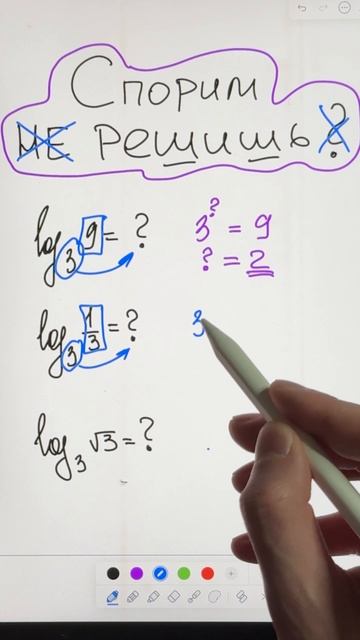 Спорим
НЕ решишь?
log₃ 9 = ? 3^? = 9
? = 2
log₃ 1/3 = ? 3
log₃ √3 = ?